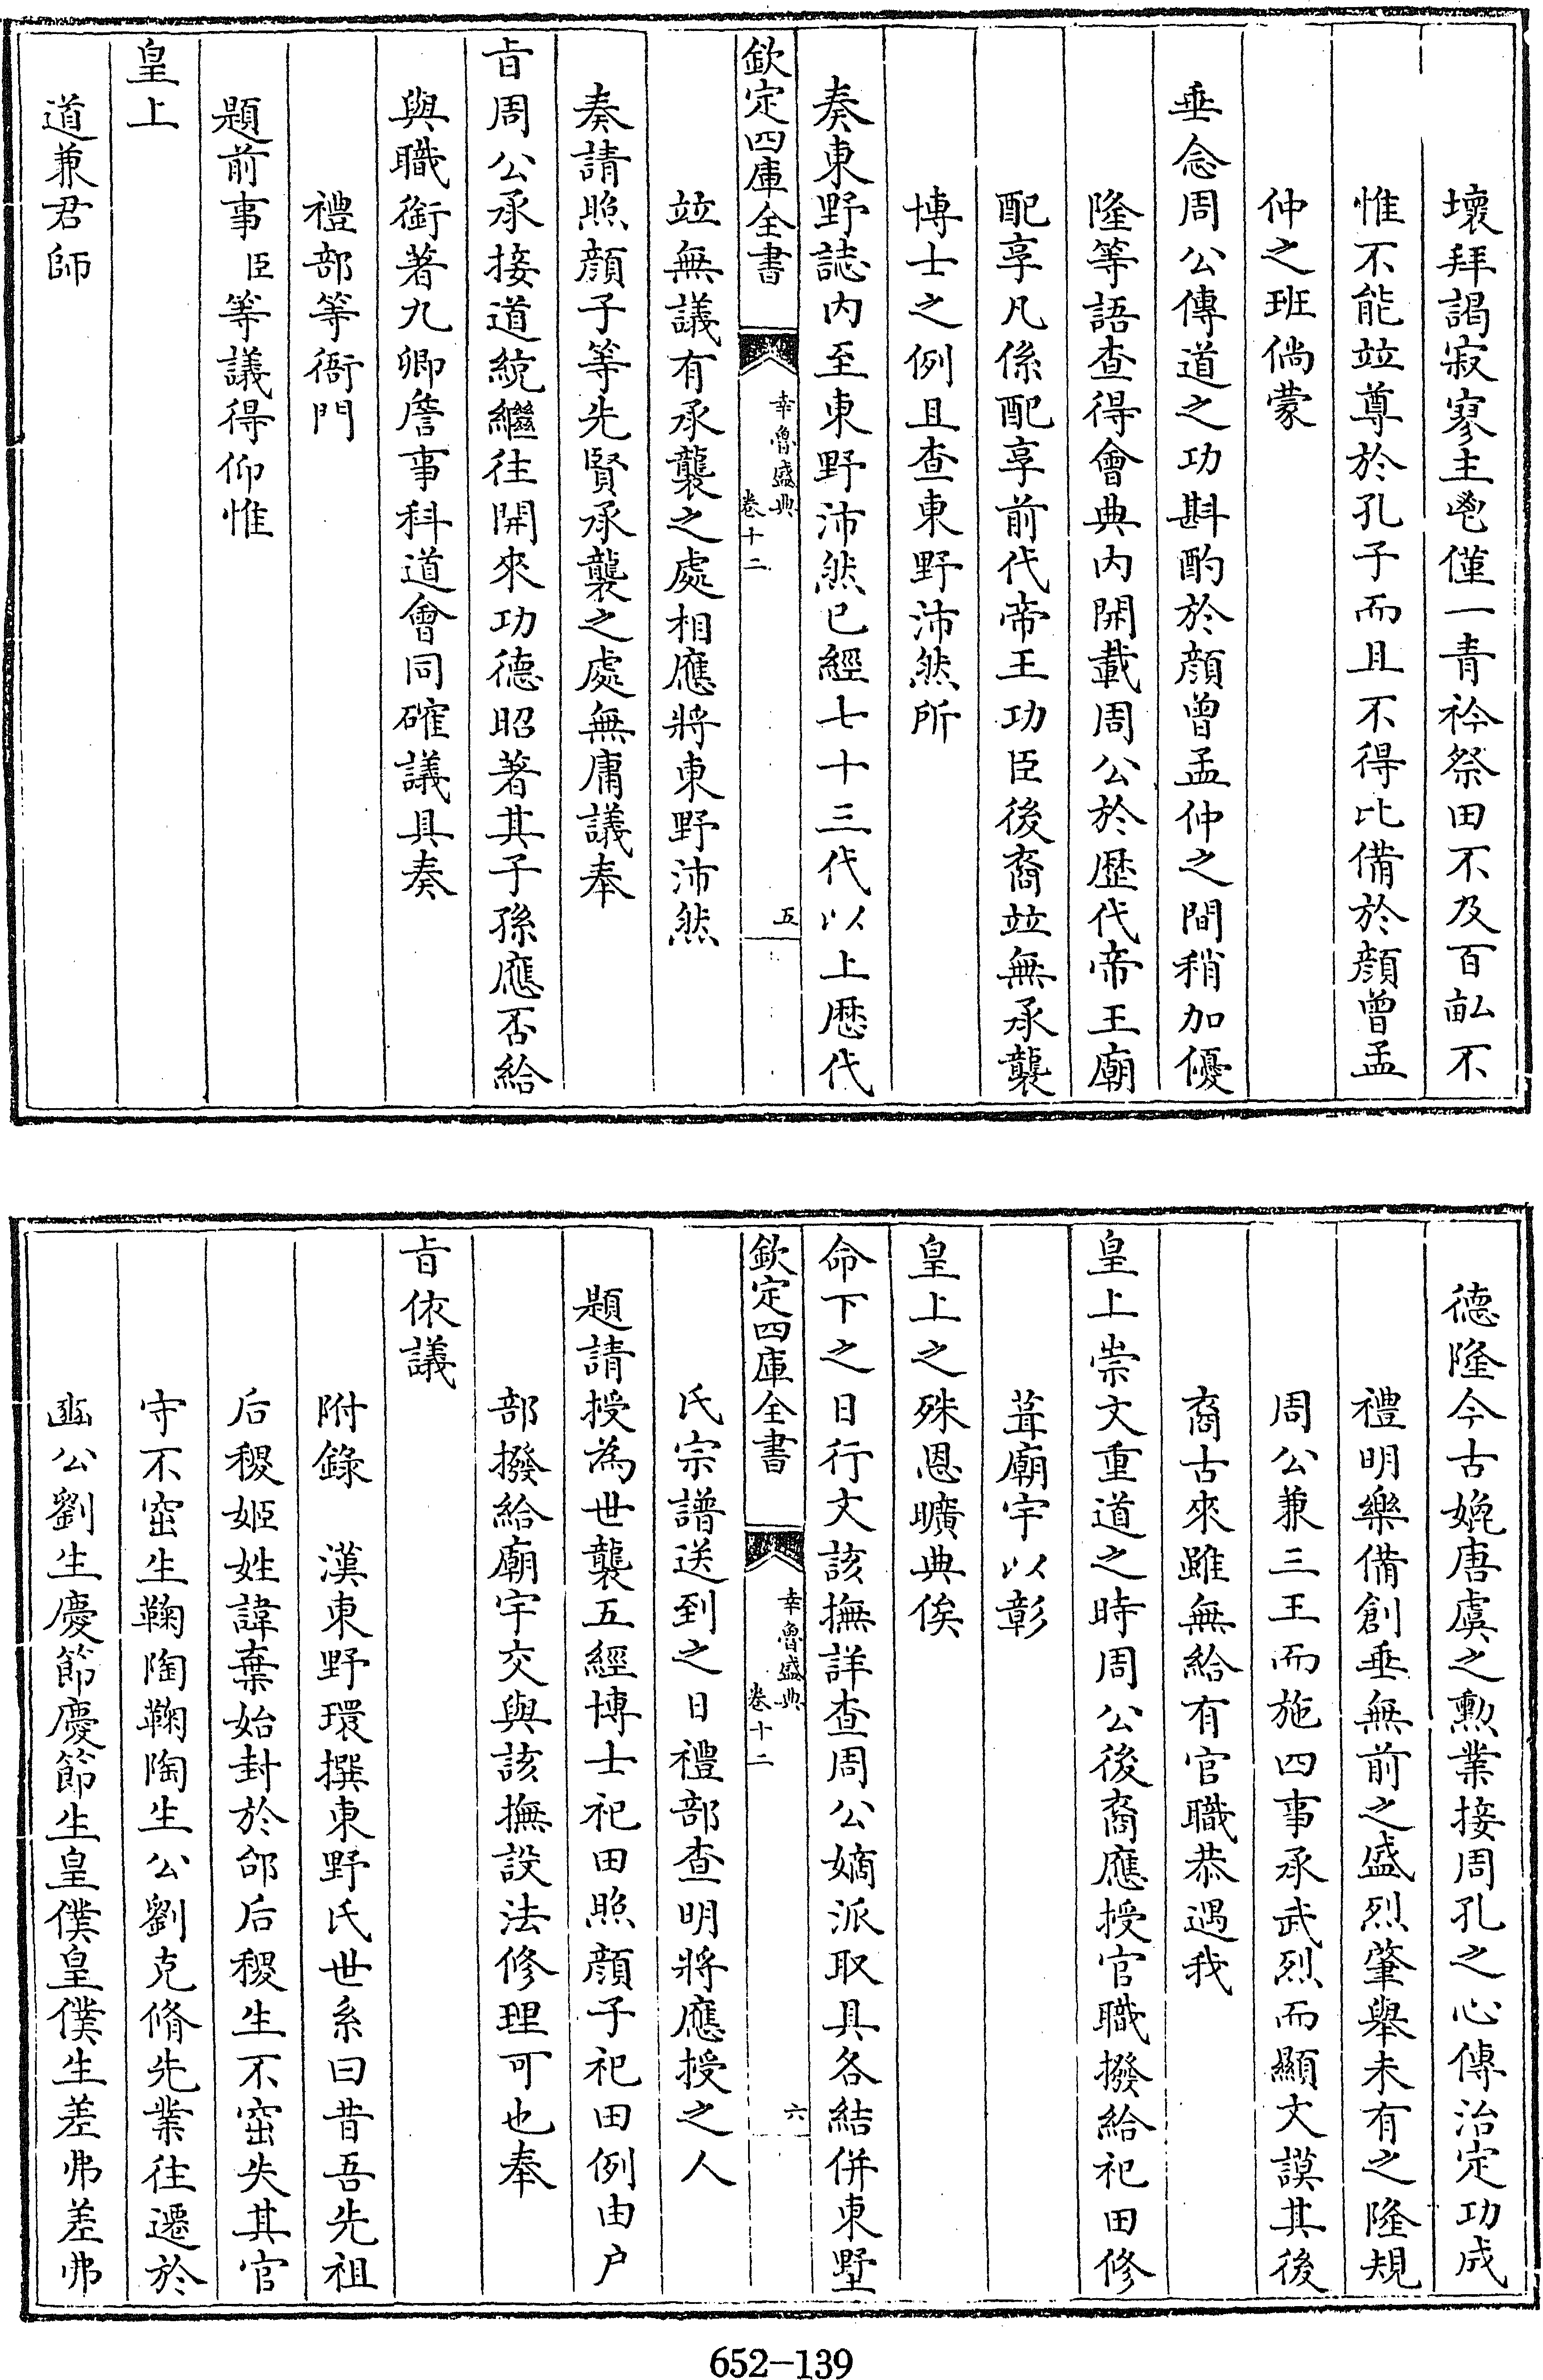 壞拜謁寂寥主鬯僅一青衿祭田不及百畝不
惟不能竝尊於孔子而且不得比備於顔曾孟
仲之班倘蒙
垂念周公傳道之功斟酌於顔曾孟仲之間稍加優
隆等語查得會典内開載周公於歴代帝王廟
配享凡係配享前代帝王功臣後裔竝無承襲
博士之例且查東野沛然所
奏東野誌内至東野沛然已經七十三代以上歴代
欽定四庫全書
幸魯盛典
卷十二
五
竝無議有承襲之處相應將東野沛然
奏請照顔子等先賢承襲之處無庸議奉
旨周公承接道統繼往開來功德昭著其子孫應否給
與職銜著九卿詹事科道會同確議具奏
禮部等衙門
題前事臣等議得仰惟
皇上
道兼君師
德隆今古媲唐虞之勲業接周孔之心傳治定功成
禮明樂備創垂無前之盛烈肇舉未有之隆規
周公兼三王而施四事承武烈而顯文謨其後
裔古來雖無給有官職恭遇我
皇上崇文重道之時周公後裔應授官職撥給祀田修
葺廟宇以彰
皇上之殊恩曠典俟
命下之日行文該撫詳查周公嫡派取具各結併東墅
欽定四庫全書
幸魯盛典
卷十二
六
氏宗譜送到之日禮部查明將應授之人
題請授為世襲五經博士祀田照顔子祀田例由户
部撥給廟宇交與該撫設法修理可也奉
旨依議
附錄　漢東野環撰東野氏世系曰昔吾先祖
后稷姬姓諱棄始封於邰后稷生不窋失其官
守不窋生鞠陶鞠陶生公劉克脩先業往遷於
豳公劉生慶節慶節生皇僕皇僕生差弗差弗
652-139